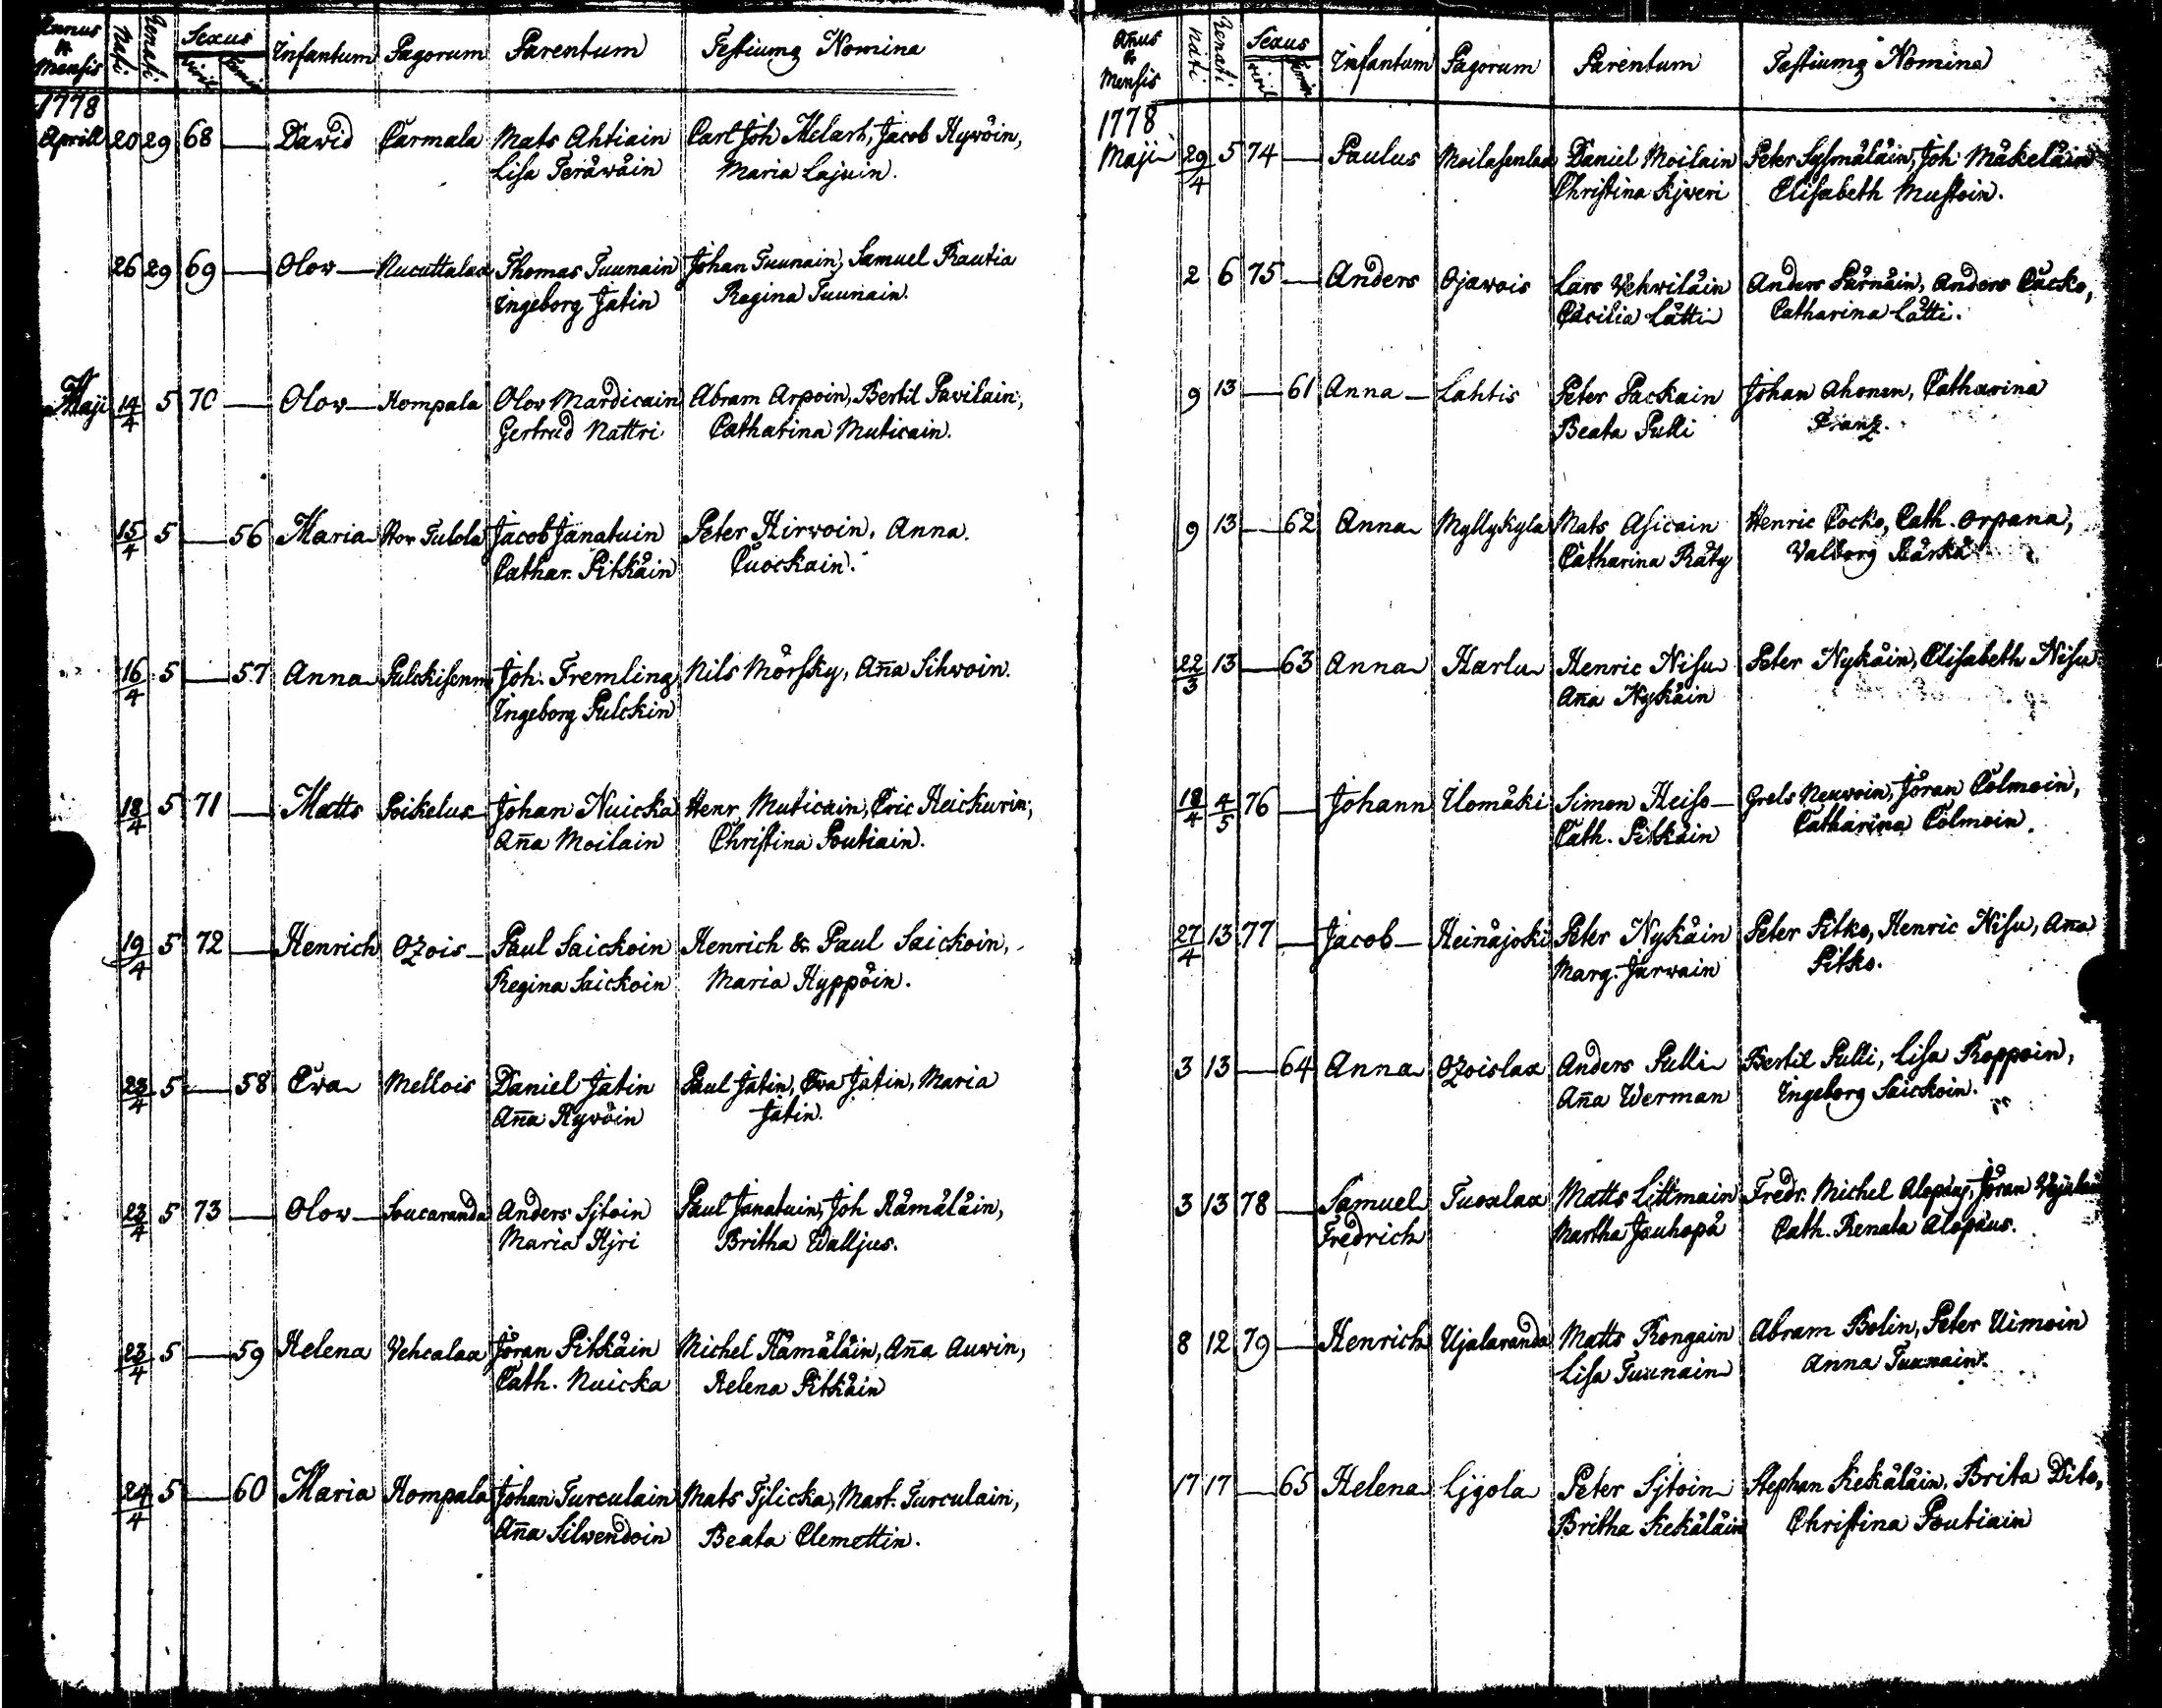 Annus & Mensis Nati Renati Sexus Infantum Pagorum Parentum Testiumq Nomina
Viril Femin
1778
Aprill 20 29 68 — David Carmala Mats Ahtiain Carl Joh Melart, Jacob Hyvöin,
Lisa Teräwäin Maria Lajuin.
26 29 69 — Olov Nucuttalax Thomas Tuunain Johan Tuunain, Samuel Rautia
Ingeborg Jatin Regina Tuunain.
Maji 14/4 5 70 — Olov Kompala Olov Mardicain Abram Arpoin, Bertil Pavilain,
Gertrud Nattri Catharina Muticain.
15/4 5 — 56 Maria Stor Tulola Jacob Janatuin Peter Hirvoin, Anna
Cathar. Pitkäin Cuockain.
16/4 5 — 57 Anna Pulckisenm Joh. Fremling Nils Mörsky, Aña Sihvoin.
Ingeborg Pulckin
18/4 5 71 — Matts Poikelus Johan Nuicka Henr. Muticain, Eric Heickurin,
Aña Moilain Christina Poutiain.
19/4 5 72 — Henrich Ozois Paul Saickoin Henrich & Paul Saickoin,
Regina Saickoin Maria Hyppöin.
23/4 5 — 58 Eva Mellois Daniel Jatin Paul Jatin, Eva Jatin, Maria
Aña Hyvöin Jatin.
23/4 5 73 — Olov Soucaranda Anders Sjtoin Paul Janatuin, Joh Hämäläin,
Maria Kjri Britha Walljus.
23/4 5 — 59 Helena Vehcalax Jöran Pitkäin Michel Hämäläin, Aña Auvin,
Cath. Nuicka Helena Pitkäin
24/4 5 — 60 Maria Kompala Johan Turculain Mats Tjlicka, Mart. Turculain,
Aña Silvendoin Beata Clemettin.
Añus & Mensis Nati Renati Sexus Infantum Pagorum Parentum Testiumq Nomina
Viril Femin
1778
Maji 29/4 5 74 — Paulus Moilasenlax Daniel Moilain Peter Sylmäläin, Joh. Mäkeläin
Christina Kjveri Elisabeth Mustoin.
2 6 75 — Anders Ojavois Lars Vehviläin Anders Pärnäin, Anders Cucko,
Cäcilia Lätti Catharina Lätti.
9 13 — 61 Anna Lahtis Peter Packain Johan Ahonen, Catharina
Beata Pulli Franz.
9 13 — 62 Anna Myllykyla Mats Asicain Henric Cocko, Cath. Orpana,
Catharina Räty Valborg Kärkä
22/3 13 — 63 Anna Harlu Henric Nisu Peter Nykäin, Elisabeth Nisu
Aña Nykäin
18/4 4/5 76 — Johann Ilomäki Simon Heiso Grels Neuvoin, Jöran Colmoin,
Cath. Pitkäin Catharina Colmoin.
27/4 13 77 — Jacob Heinäjoki Peter Nykäin Peter Pitko, Henric Nisu, Aña
Marg. Jurvain Pitko.
3 13 — 64 Anna Ozoislax Anders Pulli Bertil Pulli, Lisa Roppoin,
Aña Werman Ingeborg Saickoin.
3 13 78 — Samuel Tuoxlax Matts Littmain Fredr. Michel Alopäus, Jöran
Fredrich Martha Jauhopä Cath. Renata Alopäus.
8 12 79 — Henrich Ujalaranda Matts Rongain Abram Bolin, Peter Uimoin
Lisa Tuunain Anna Tuunain.
17 17 — 65 Helena Ljgola Peter Sjtoin Stephan Kekäläin, Brita Dito,
Britha Kekäläin Christina Poutiain